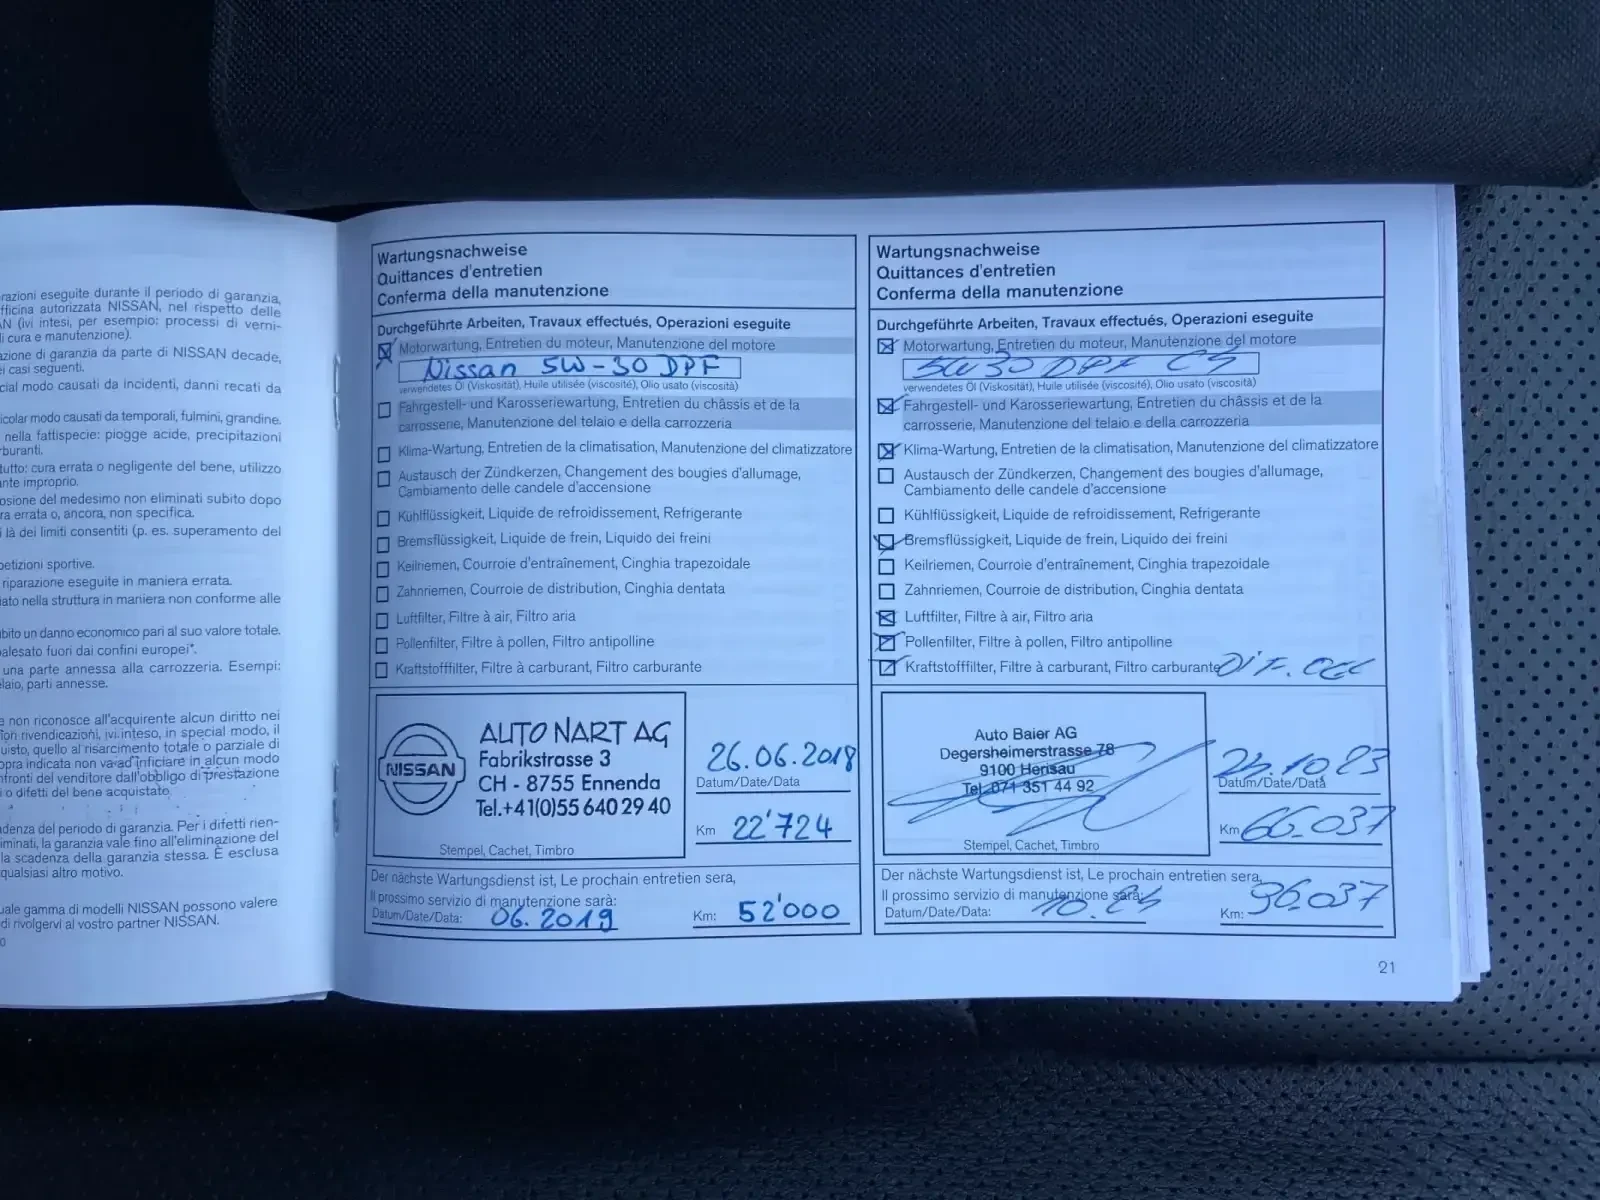 razioni eseguite durante il periodo di garanzia,
fficina autorizzata NISSAN, nel rispetto delle
AN (ivi intesi, per esempio: processi di verni-
i cura e manutenzione).
azione di garanzia da parte di NISSAN decade,
ei casi seguenti.
cial modo causati da incidenti, danni recati da
icolar modo causati da temporali, fulmini, grandine.
nella fattispecie: piogge acide, precipitazioni
rburanti.
tutto: cura errata o negligente del bene, utilizzo
nte improprio.
osione del medesimo non eliminati subito dopo
ra errata o, ancora, non specifica.
i là dei limiti consentiti (p. es. superamento del
petizioni sportive.
riparazione eseguite in maniera errata.
ato nella struttura in maniera non conforme alle
ubito un danno economico pari al suo valore totale.
palesato fuori dai confini europei*.
una parte annessa alla carrozzeria. Esempi:
elaio, parti annesse.
e non riconosce all'acquirente alcun diritto nei
iori rivendicazioni, ivi inteso, in special modo, il
uisto, quello al risarcimento totale o parziale di
opra indicata non va ad inficiare in alcun modo
nfronti del venditore dall'obbligo di prestazione
i o difetti del bene acquistato.
adenza del periodo di garanzia. Per i difetti rien-
iminati, la garanzia vale fino all'eliminazione del
la scadenza della garanzia stessa. È esclusa
qualsiasi altro motivo.
uale gamma di modelli NISSAN possono valere
di rivolgervi al vostro partner NISSAN.
0
Wartungsnachweise
Quittances d'entretien
Conferma della manutenzione
Durchgeführte Arbeiten, Travaux effectués, Operazioni eseguite
Motorwartung, Entretien du moteur, Manutenzione del motore
Nissan 5W-30 DPF
verwendetes Öl (Viskosität), Huile utilisée (viscosité), Olio usato (viscosità)
Fahrgestell- und Karosseriewartung, Entretien du châssis et de la
carrosserie, Manutenzione del telaio e della carrozzeria
Klima-Wartung, Entretien de la climatisation, Manutenzione del climatizzatore
Austausch der Zündkerzen, Changement des bougies d'allumage,
Cambiamento delle candele d'accensione
Kühlflüssigkeit, Liquide de refroidissement, Refrigerante
Bremsflüssigkeit, Liquide de frein, Liquido dei freini
Keilriemen, Courroie d'entraînement, Cinghia trapezoidale
Zahnriemen, Courroie de distribution, Cinghia dentata
Luftfilter, Filtre à air, Filtro aria
Pollenfilter, Filtre à pollen, Filtro antipolline
Kraftstofffilter, Filtre à carburant, Filtro carburante
NISSAN
AUTO NART AG
Fabrikstrasse 3
CH - 8755 Ennenda
Tel.+41(0)55 640 29 40
Stempel, Cachet, Timbro
26.06.2018
Datum/Date/Data
Km 22'724
Der nächste Wartungsdienst ist, Le prochain entretien sera,
Il prossimo servizio di manutenzione sarà:
Datum/Date/Data: 06.2019 Km: 52'000
Wartungsnachweise
Quittances d'entretien
Conferma della manutenzione
Durchgeführte Arbeiten, Travaux effectués, Operazioni eseguite
Motorwartung, Entretien du moteur, Manutenzione del motore
5W30 DPF
verwendetes Öl (Viskosität), Huile utilisée (viscosité), Olio usato (viscosità)
Fahrgestell- und Karosseriewartung, Entretien du châssis et de la
carrosserie, Manutenzione del telaio e della carrozzeria
Klima-Wartung, Entretien de la climatisation, Manutenzione del climatizzatore
Austausch der Zündkerzen, Changement des bougies d'allumage,
Cambiamento delle candele d'accensione
Kühlflüssigkeit, Liquide de refroidissement, Refrigerante
Bremsflüssigkeit, Liquide de frein, Liquido dei freini
Keilriemen, Courroie d'entraînement, Cinghia trapezoidale
Zahnriemen, Courroie de distribution, Cinghia dentata
Luftfilter, Filtre à air, Filtro aria
Pollenfilter, Filtre à pollen, Filtro antipolline
Kraftstofffilter, Filtre à carburant, Filtro carburante
Auto Baier AG
Degersheimerstrasse 78
9100 Herisau
Tel. 071 351 44 92
Stempel, Cachet, Timbro
Datum/Date/Data
Km 66.037
Der nächste Wartungsdienst ist, Le prochain entretien sera,
Il prossimo servizio di manutenzione sarà:
Datum/Date/Data: Km: 96.037
21